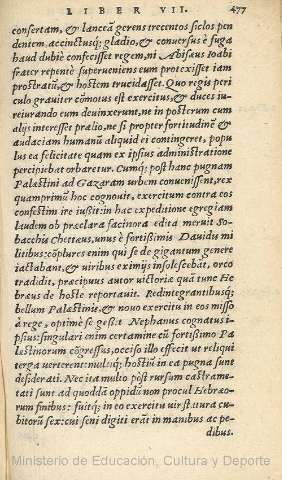 LIBER VII. 477
consertam, & lanceã gerens trecentos siclos pen
dentem, accinctusq; gladio, & conversus è fuga
haud dubiè confecisset regem, ni Abisæus Ioabi
frater repentè superveniens eum protexisset iam
prostratũ, & hostem trucidasset. Quo regis peri
culo graviter cõmotus est exercitus, & duces iu-
reiurando eum devinxerunt, ne in posterum cum
alijs interesset prælio, ne si propter fortitudinẽ &
audaciam humani aliquid ei contingeret, popu
lus ea felicitate quam ex ipsius administratione
percipiebat orbaretur. Cumq; post hanc pugnam
Palæstini ad Gazaram urbem convenissent, rex
quamprimũ hoc cognovit, exercitum contra eos
confestim ire iussit: in hac expeditione egregiam
laudem ob præclara facinora edita meruit So-
bacchis Chettæus, unus è fortißimis Davidis mi
litibus: cõplures enim qui se de gigantum genere
iactabant, & viribus eximijs insolescebãt, orco
tradidit, præcipuus autor victoriæ quã tunc He
bræus de hoste reportavit. Redintegrantibusq;
bellum Palæstinis, & novo exercitu in eos misso
à rege, optimè se geßit Nephanus cognatus i-
psius: singulari enim certamine cũ fortißimo Pa
læstinorum cõgressus, occiso illo effecit ut reliqui
terga verterent: multiq; hostiũ in ea pugna sunt
desiderati. Nec ita multo pòst rursum castrame-
tati sunt ad quoddã oppidũ non procul Hebræo-
rum finibus: fuitq; in eo exercitu vir statura cu-
bitorũ sex: cui seni digiti erãt in manibus ac pe-
dibus.
Ministerio de Educación, Cultura y Deporte